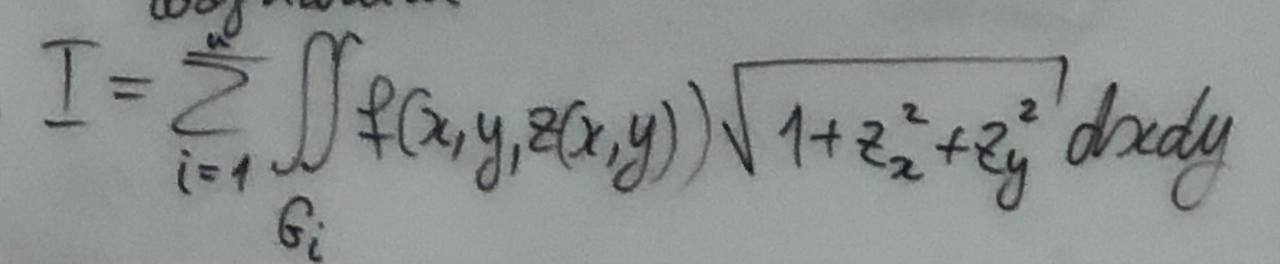 I = \sum_{i=1}^{n} \iint_{G_i} f(x, y, z(x, y)) \sqrt{1 + z_x^2 + z_y^2} dxdy